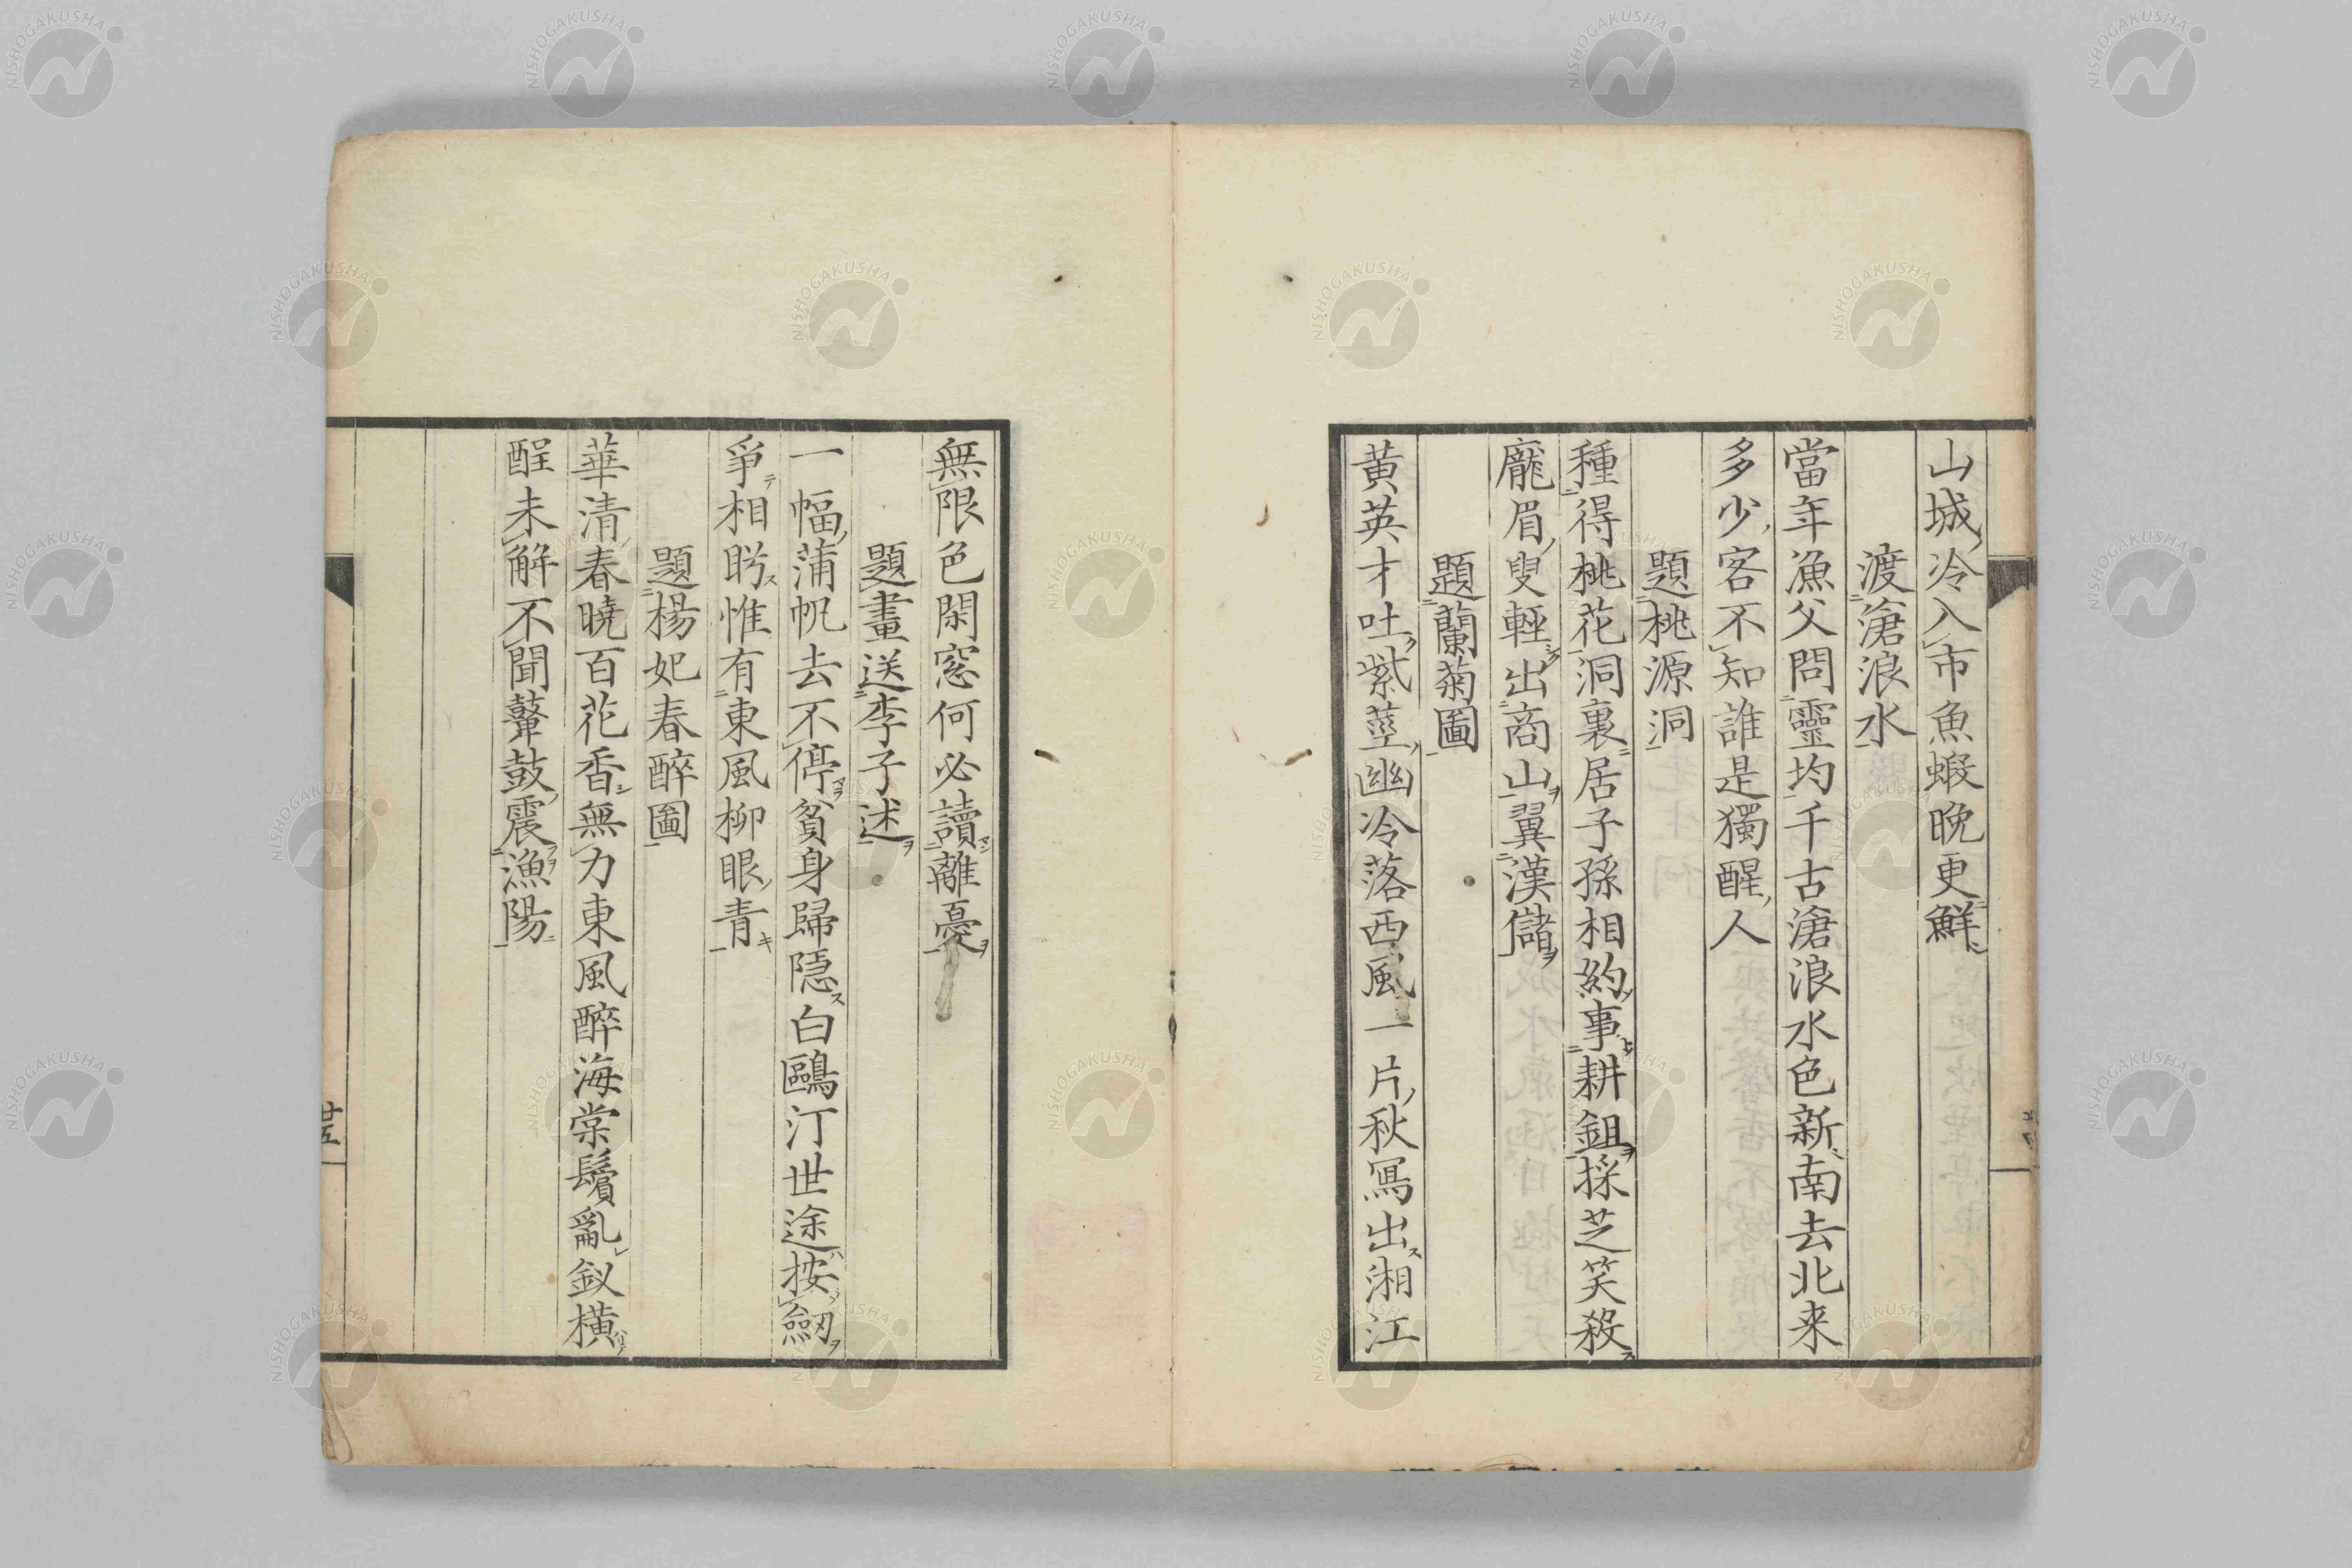 山城冷入市魚蝦晩更鮮
渡滄浪水
當年漁父問靈均千古滄浪水色新南去北来
多少客不知誰是獨醒人
題桃源洞
種得桃花洞裏居子孫相約事耕鉏採芝笑殺
龐眉叟輕出商山翼漢儲
題蘭菊圖
黄英才吐紫莖幽冷落西風一片秋寫出湘江
無限色閑窓何必讀離憂
題畫送李子述
一幅蒲帆去不停貧身歸隠白鷗汀世途按劔
爭相盻惟有東風柳眼青
題楊妃春醉圖
華清春曉百花香無力東風醉海棠鬢亂釵横
酲未解不聞鼙鼓震漁陽
廿五
NISHOGAKUSHA